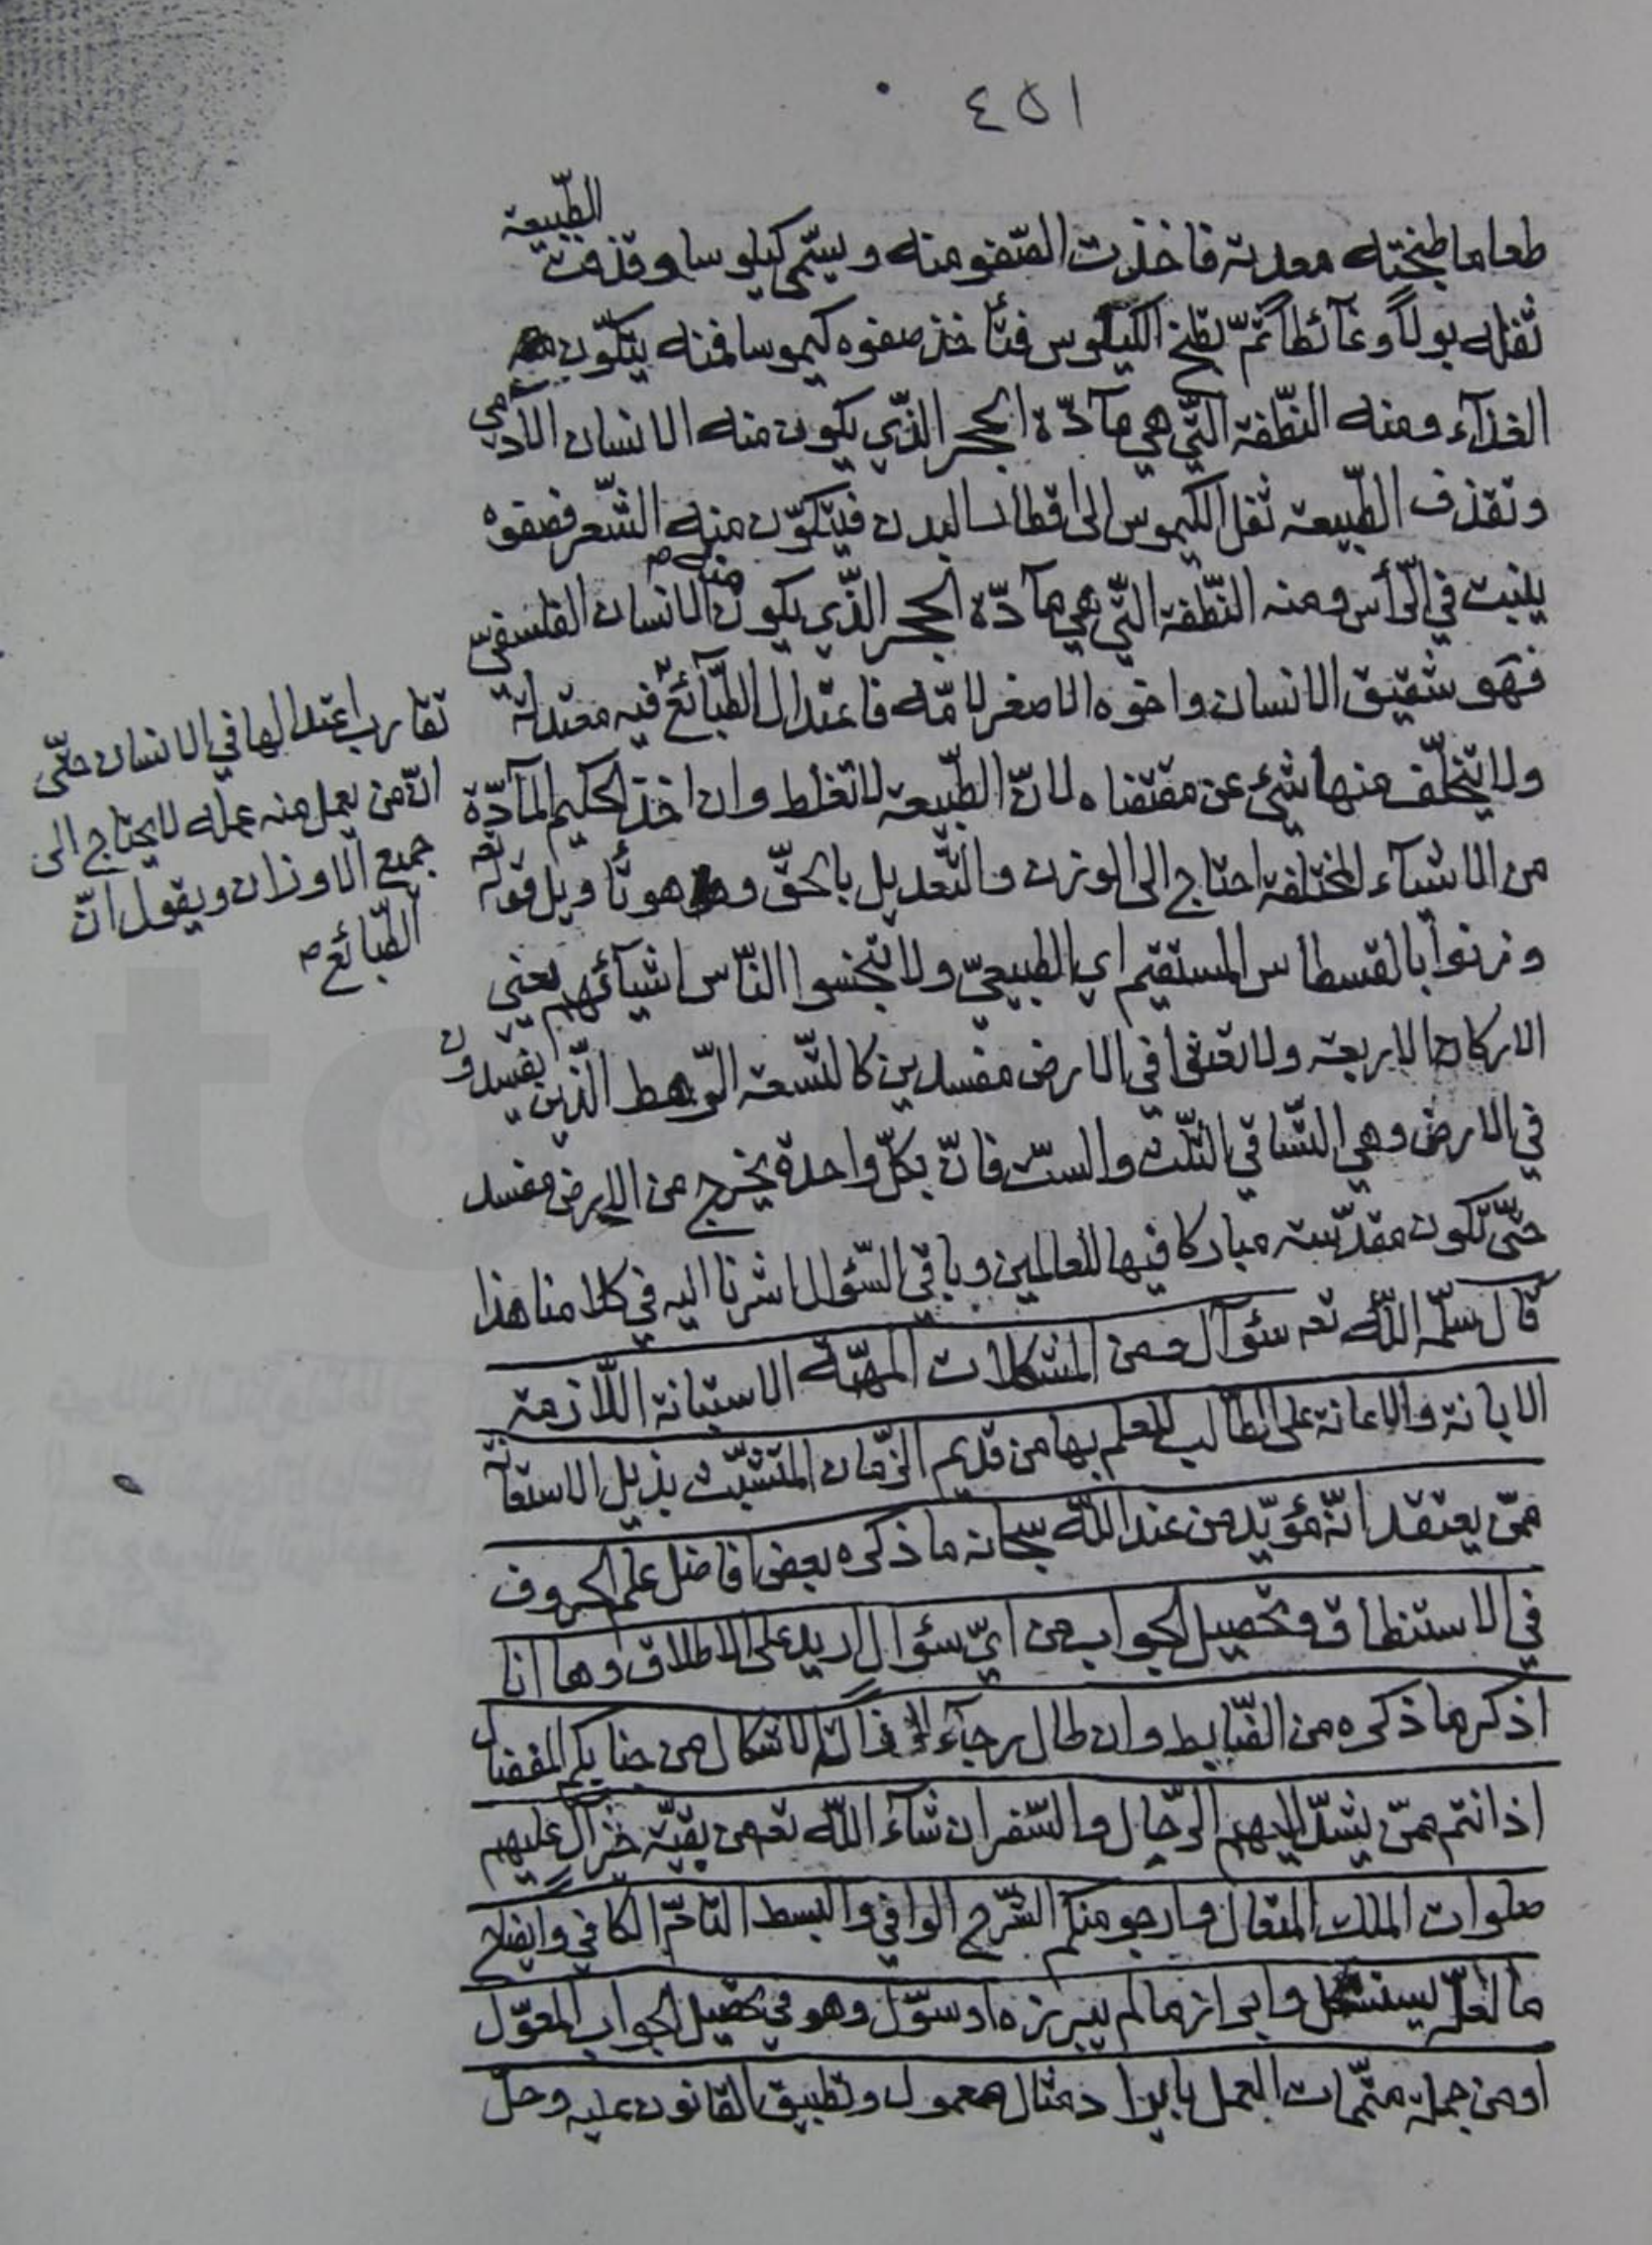 ٤٥١
طعاما طبخته معدته فاخذت الصّفو منه و يسمّى كيلوسا و قذفت الطّبيعة
ثفله بولاً و غآئطا ثمّ تطبخ الكيلوس فتأخذ صفوه كيموسا فمنه يتكوّن
الغذآء و منه النّطفة الّتي هي مآدّة الحجر الذّي يكون منه الانسان الآدمي
و تقذف الطّبيعة ثفل الكيموس الى اقطار البدن فيتكوّن منه الشّعر فصفوه
ينبت في الرّأس و منه النّطفة الّتي هي مآدّة الحجر الذّي يكون منه الانسان الفلسفيّ
فهو شقيق الانسان و اخوه الاصغر لامّه فاعتدال الطّبآئع فيه معتدلة
ولا يتخلّف منها شئ عن مقتضاه لانّ الطّبيعة لا تغلط و ان اخذ الحكيم المآدّة
من الاشيآء المختلفة احتاج الى الوزن و التّعديل بالحقّ و هو تأويل قوله تعـ
وزنوا بالقسطاس المستقيم اي الطبيعيّ ولا تبخسوا النّاس اشيآئهم يعني
الاركان الاربعة ولا تعثوا في الارض مفسدين كالتّسعة الرّهط الذّين يفسدون
في الارض و هي التّساقي الثّلث و الستّ فانّ بكلّ واحدة يخرج من الارض مفسد
حتّى تكون مقدّسة مباركا فيها للعالمين و باقي السّؤال اشرنا اليه في كلامنا هذا
قال سلّمه اللّه تعـ سئوآل و من المشكلات المهمّة الاستبانة اللّازمة
الابانة و الاعانة على الطّالب للعلم بها من قديم الزّمان المتشبّث بذيل الاستعانة
ممّن يعتقد انّه مؤيّد من عند اللّه سبحانه ما ذكره بعض افاضل علم الحروف
في الاستنطاق و تحصيل الجواب من ايّ سئوال اريد على الاطلاق و ها انا
اذكر ما ذكره من الضّابط و ان طال رجآء لازالة الاشكال من جنابكم المفضال
اذ انتم ممّن يشدّ اليهم الرّحال و السّفر ان شآء اللّه تعـ من بقيّة خير آل عليهم
صلوات الملك المتعال و ارجو منكم الشّرح الوافي و البسط التّامّ الكافي و ايضاح
ما لعلّه يستشكل و ابراز ما لم يبرزه او سوّل و هو في تحصيل الجواب المعوّل
او من جملة متمّمات العمل بايراد مثال معمول و تطبيق القانون عليه و حلّ
تقارب اعتدالها في الانسان حتّى
انّ من يعمل منه عمله لا يحتاج الى
جميع الاوزان و يقول انّ
الطّبائع